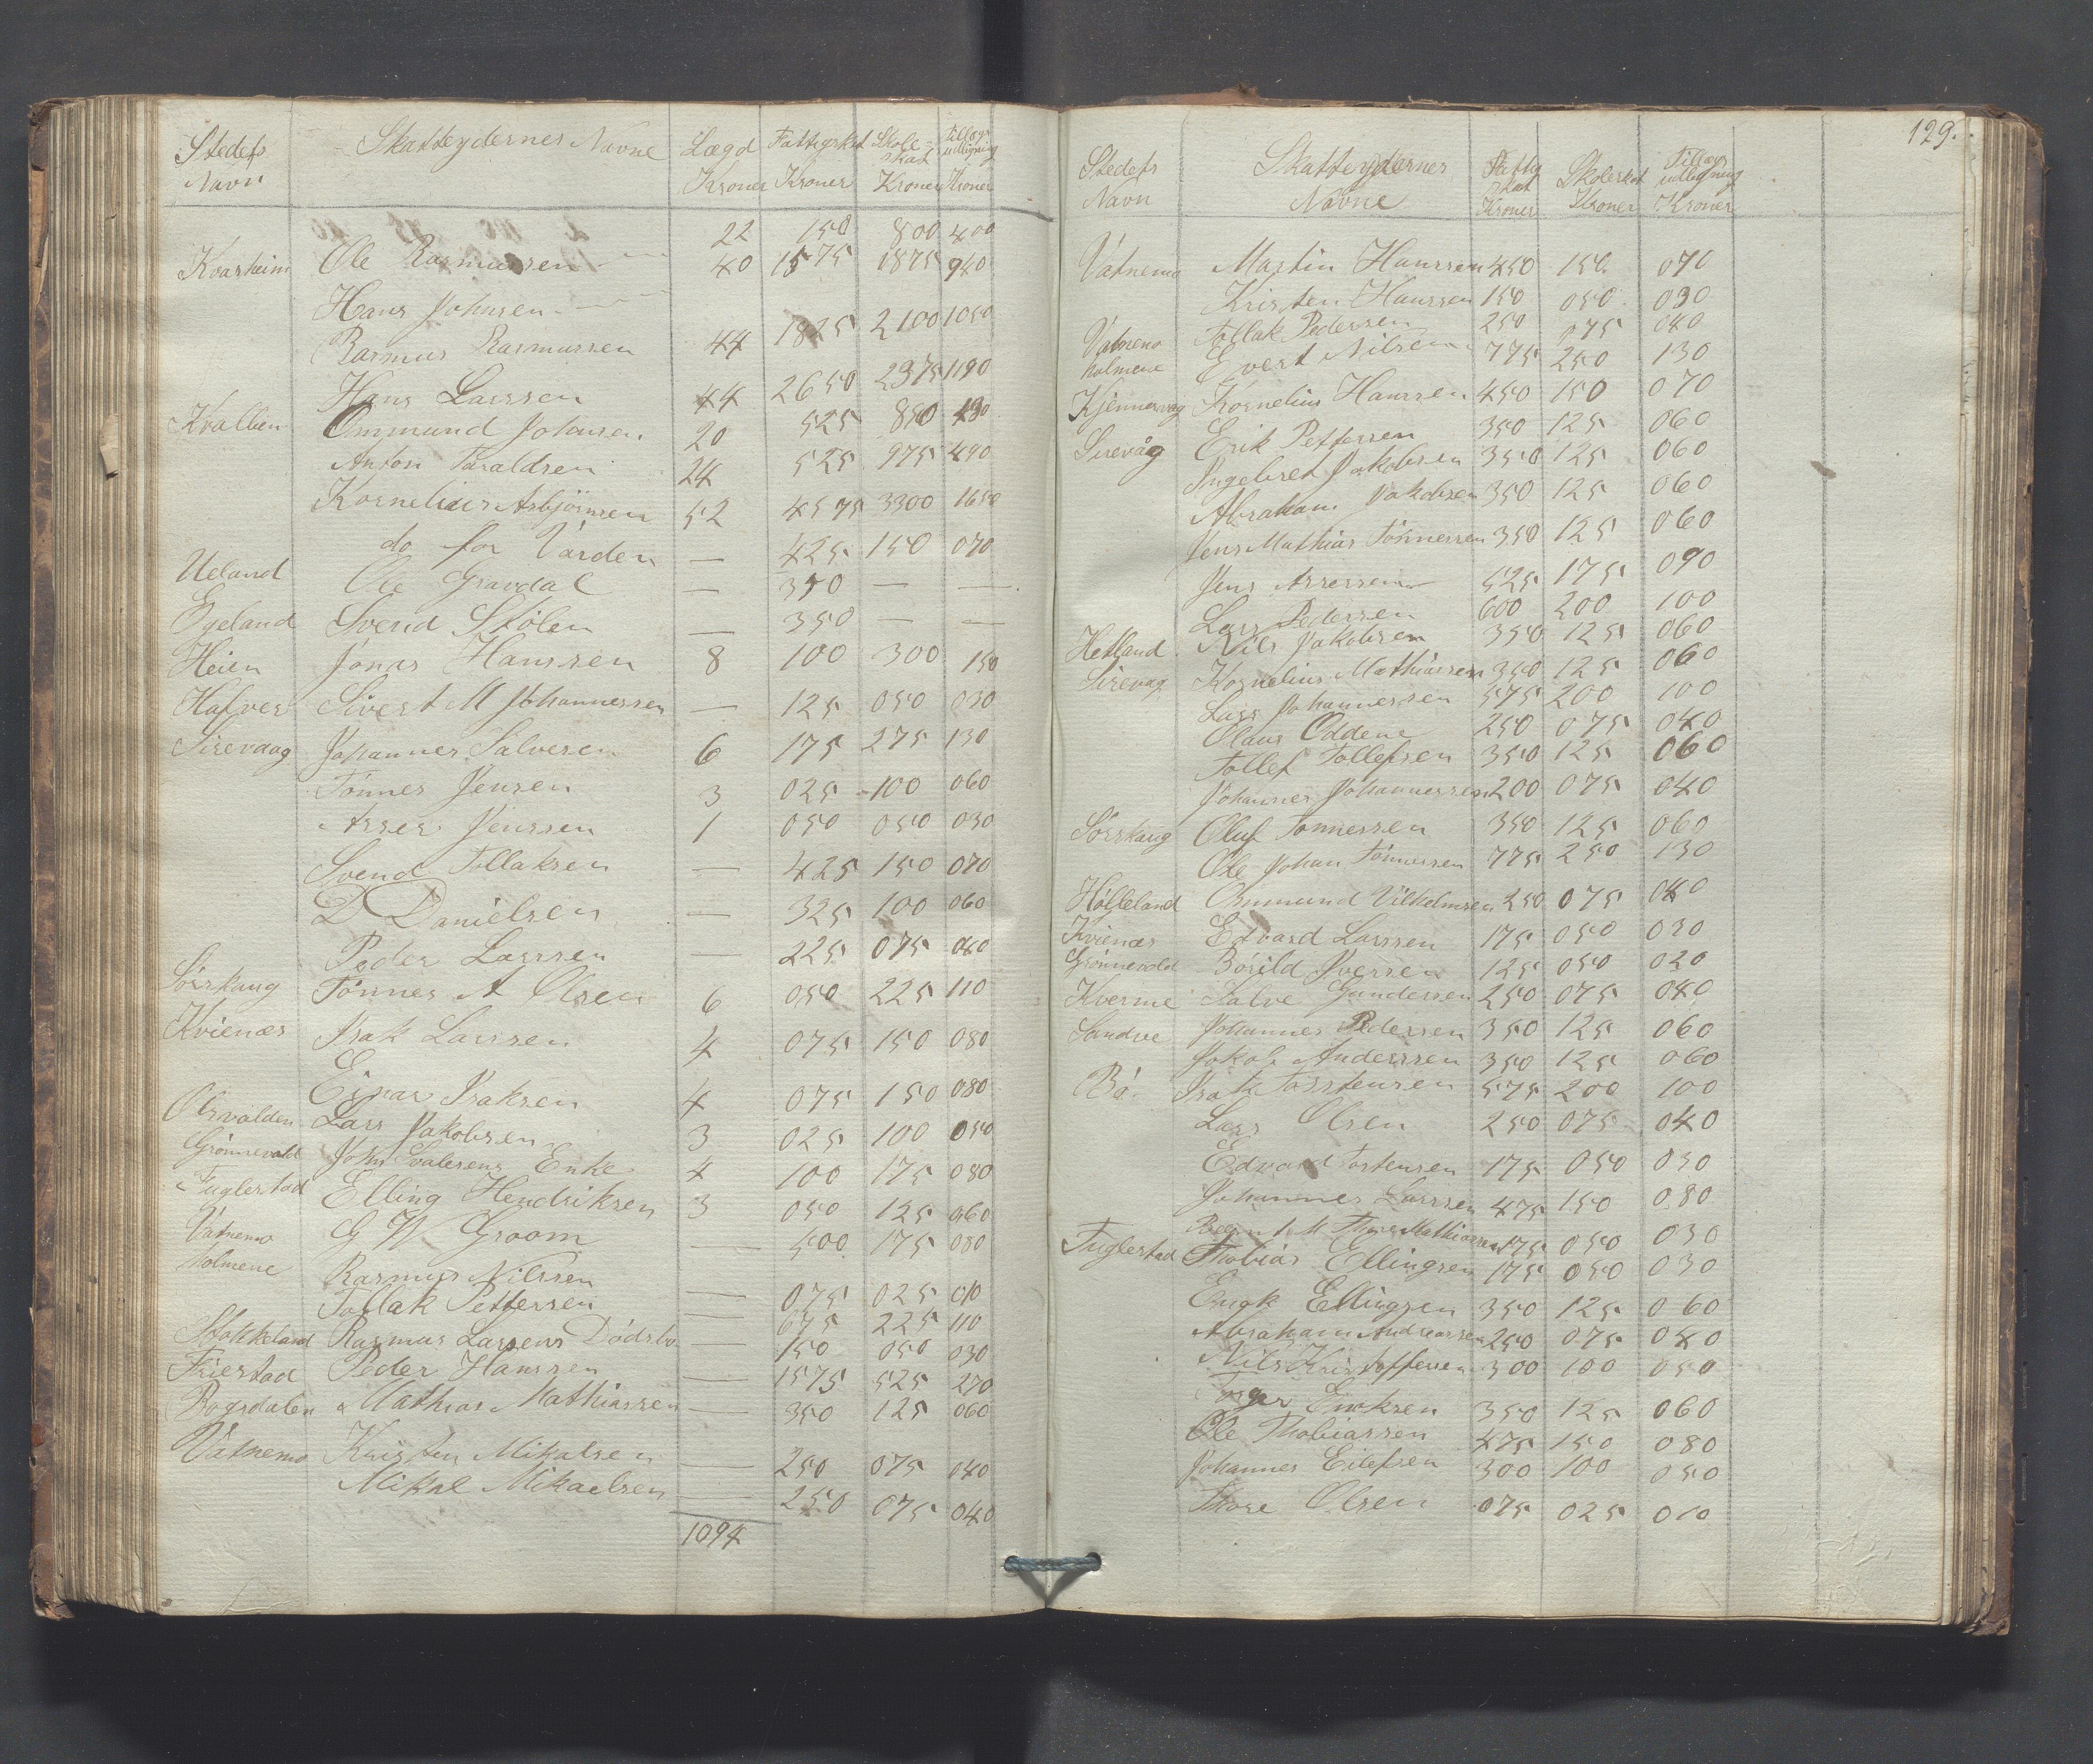 Stedets Navn Skatteydernes Navne Lægd Kroner Fattigskat Kroner Skoleskat Kroner Tillægs udligning Kroner
Kvasheim Ole Rasmussen 22 150 800 400
Hans Johnsen 40 1575 1875 940
Rasmus Rasmussen 44 1825 2100 1050
Hans Larssen 44 2650 2375 1190
Kvalben Ommund Johnsen 20 525 850 430
Anton Taraldsen 24 525 975 490
Kornelius Asbjörnsen 52 4575 3300 1650
do for Varden — 425 150 070
Ueland Ole Gravdal — 350 — —
Egeland Svend Stölen — 350 — —
Heien Jonas Hanssen 8 100 300 150
Hafver Sivert M Johannessen — 125 050 030
Sirevaag Johannes Salvesen 6 175 275 130
Tönnes Jensen 3 025 100 060
Asser Jenssen 1 050 050 030
Svend Tollaksen — 425 150 070
D Danielsen — 325 100 060
Peder Larssen — 225 075 040
Sörskaug Tönnes A Olsen 6 050 225 110
Kvienæs Isak Larssen 4 075 150 080
Einar Isaksen 4 075 150 080
Olsvalden Lars Jakobsen 3 025 100 050
Grönnevald John Svalesens Enke 4 100 175 080
Fuglestad Elling Hendriksen 3 050 125 060
Vatnemo G W Groom — 500 175 080
holmene Rasmus Nilssen — 075 025 010
Tollak Pettersen — 675 225 110
Stokkeland Rasmus Larsens Dödsbo — 150 050 030
Friestad Peder Hanssen — 1575 525 270
Rogsdalen Mathias Mathiassen — 350 125 060
Vatnemo Kristen Mikalsen — 250 075 040
Mikal Mikaelsen — 250 075 040
1094
129.
Stedets Navn Skatteydernes Navne Fattig skat Kroner Skoleskat Kroner Tillægs udligning Kroner
Vatnemo Martin Hanssen 450 150 070
Kristen Hanssen 150 050 030
Vatnemo Tollak Pedersen 250 075 040
holmene Evert Nilsen 775 250 130
Kjennesvåg Kornelius Hanssen 450 150 070
Sirevåg Erik Pettersen 350 125 060
Ingebret Jakobsen 350 125 060
Abraham Jakobsen 350 125 060
Jens Mathias Tönnessen 350 125 060
Jens Assersen 525 175 090
Lars Pedersen 600 200 100
Hetland Nils Jakobsen 350 125 060
Sirevåg Kornelius Mathiassen 350 125 060
Lars Johannessen 575 200 100
Olaus Oddene 250 075 040
Tollef Tollefsen 350 125 060
Johannes Johannessen 200 075 040
Sörskaug Oluf Tönnessen 350 125 060
Ole Johan Tönnessen 775 250 130
Hölleland Ommund Vilhelmsen 250 075 040
Kvienæs Edvard Larssen 175 050 030
Grönnevald Börild Iversen 125 050 020
Kverme Salve Gundersen 250 075 040
Sandve Johannes Pedersen 350 125 060
Jakob Anderssen 350 125 060
Bö Isak Torstensen 575 200 100
Lars Olsen 250 075 040
Edvard Tostensen 175 050 030
Johannes Larssen 475 150 080
Mathiassen 175 050 030
Fuglestad Thobias Ellingsen 175 050 030
Enok Ellingsen 350 125 060
Abraham Andreassen 250 075 040
Nils Kristoffersen 300 100 050
Enoksen 350 125 060
Ole Thobiassen 475 150 080
Johannes Eilefsen 300 100 050
Thore Olsen 075 025 010